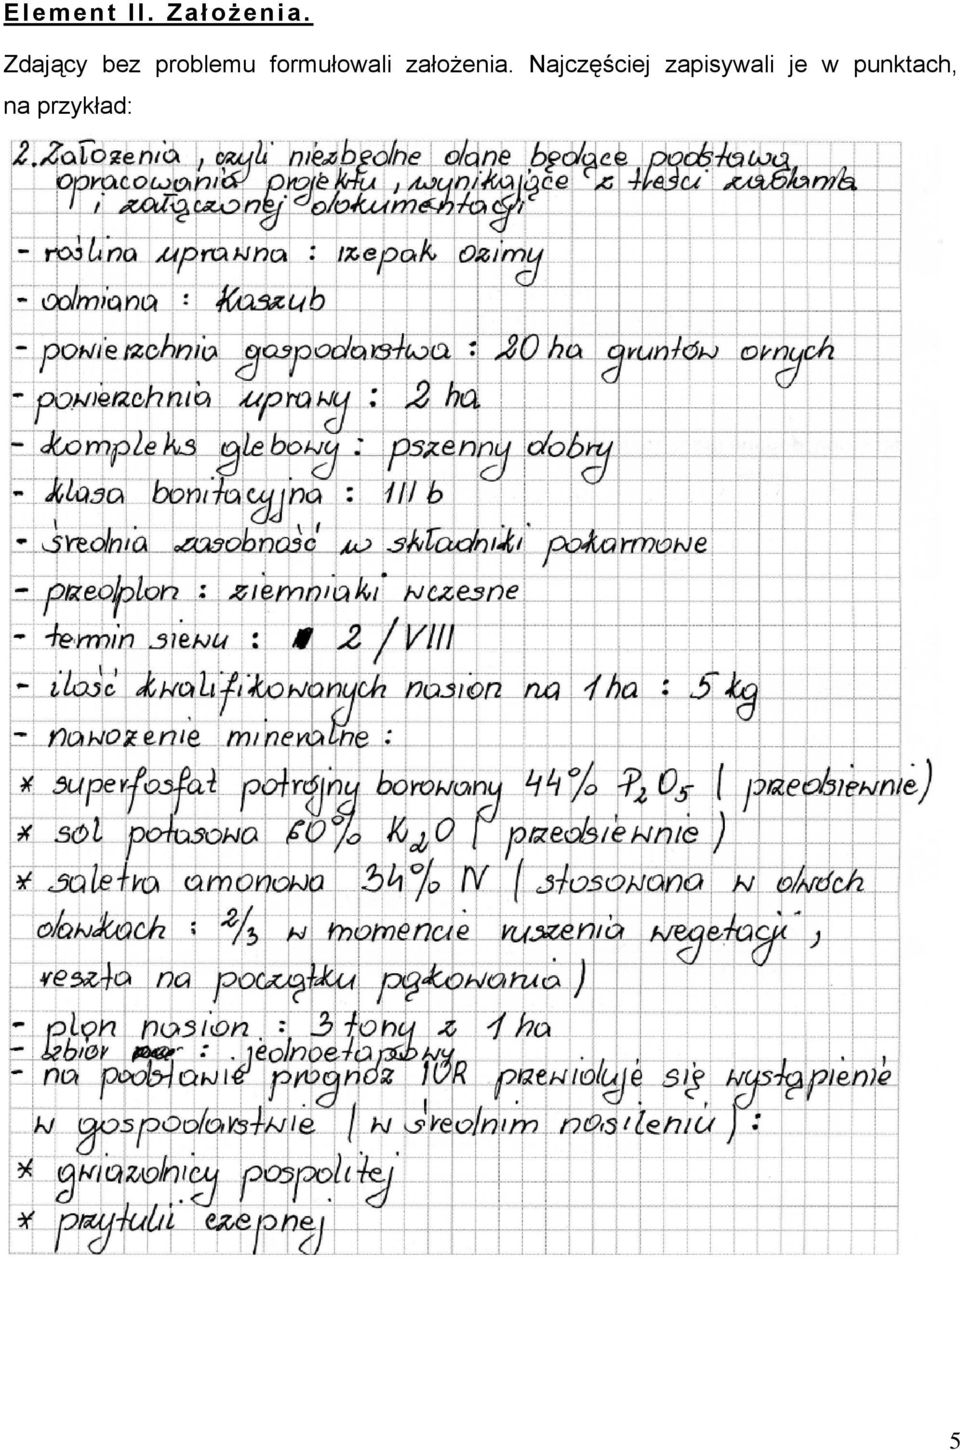 Element II. Założenia.
Zdający bez problemu formułowali założenia. Najczęściej zapisywali je w punktach,
na przykład:
2. Założenia, czyli niezbędne dane będące podstawą
opracowania projektu, wynikające z treści zadania
i załączonej dokumentacji
- roślina uprawna : rzepak ozimy
- odmiana : Kaszub
- powierzchnia gospodarstwa : 20 ha gruntów ornych
- powierzchnia uprawy : 2 ha
- kompleks glebowy : pszenny dobry
- klasa bonitacyjna : III b
- średnia zasobność w składniki pokarmowe
- przedplon : ziemniaki wczesne
- termin siewu : 2/VIII
- ilość kwalifikowanych nasion na 1 ha : 5 kg
- nawożenie mineralne :
* superfosfat potrójny borowany 44% P2O5 (przedsiewnie)
* sól potasowa 60% K2O (przedsiewnie)
* saletra amonowa 34% N (stosowana w dwóch
dawkach : 2/3 w momencie ruszenia wegetacji,
reszta na początku pąkowania)
- plon nasion : 3 tony z 1 ha
- zbiór : jednoetapowy
- na podstawie prognoz IOR przewiduje się wystąpienie
w gospodarstwie (w średnim nasileniu) :
* gwiazdnicy pospolitej
* przytulii czepnej
5